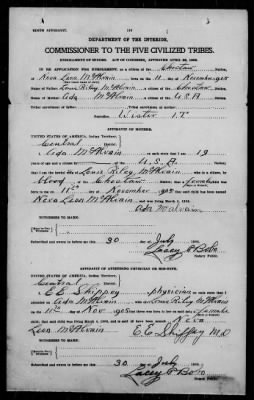 BIRTH AFFIDAVIT.
DEPARTMENT OF THE INTERIOR,
COMMISSIONER TO THE FIVE CIVILIZED TRIBES.
ENROLLMENT OF MINORS. ACT OF CONGRESS, APPROVED APRIL 26, 1906.
IN RE APPLICATION FOR ENROLLMENT, as a citizen of the Choctaw Nation, of
Neva Leon McIlvain, born on the 11 day of November 1905
Name of Father: Louis Riley McIlvain a citizen of the Choctaw Nation.
Name of Mother: Ada McIlvain a citizen of the U.S.A.
Tribal enrollment of father
Tribal enrollment of mother
Postoffice Wister I.T.
AFFIDAVIT OF MOTHER.
UNITED STATES OF AMERICA, Indian Territory,
Central
I, Ada McIlvain, on oath state that I am 19
years of age and a citizen by, of the U.S.A.
that I am the lawful wife of Louis Riley McIlvain, who is a citizen, by
Blood, of the Choctaw Nation; that a female child was born to me
on 11th day of November, 1905; that said child has been named
Neva Leon McIlvain, and was living March 4, 1906.
Ada McIlvain
WITNESSES TO MARK:
Subscribed and sworn to before me this 30 day of July, 1906
Lacey P Bobo
Notary Public.
AFFIDAVIT OF ATTENDING PHYSICIAN OR MID-WIFE.
UNITED STATES OF AMERICA, Indian Territory,
Central
I, E E Shippey, a physician, on oath state that I
attended on Ada McIlvain, wife of Louis Riley McIlvain
on the 11th day of Nov, 1905; that there was born to her on said date a female
child; that said child was living March 4, 1906, and is said to have been named Neva
Leon McIlvain
E.E. Shippey M.D.
WITNESSES TO MARK:
Subscribed and sworn to before me this 30 day of July, 1906
Lacey P Bobo
Notary Public.